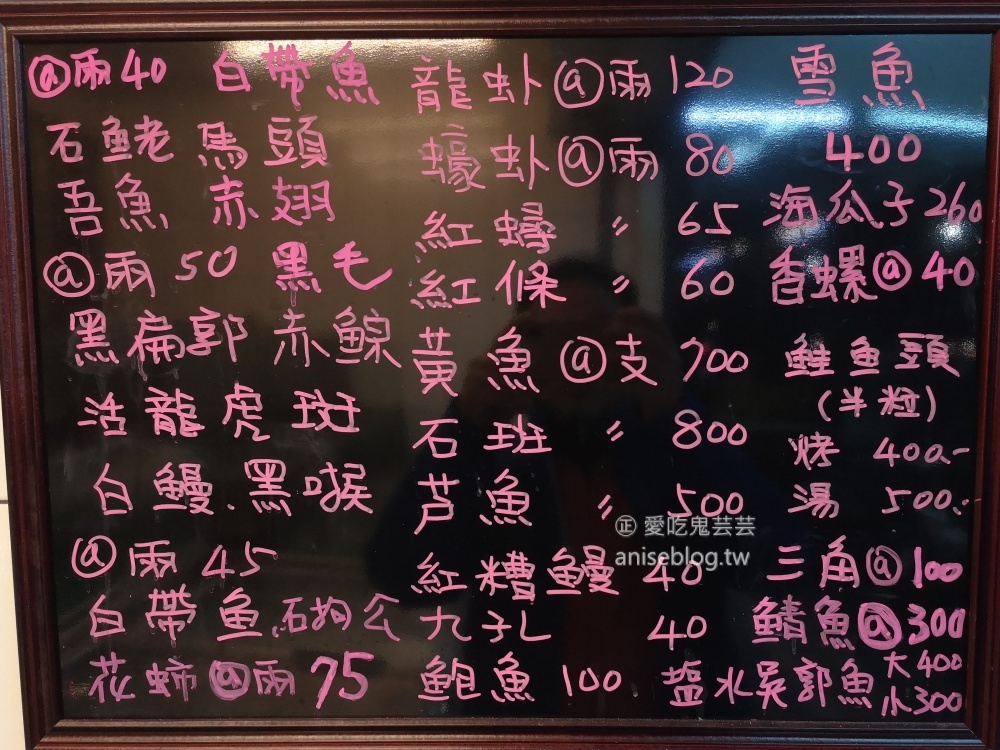 @兩40 白帶魚
石鮱 馬頭
吾魚 赤翅
@兩50 黑毛
黑扁郭 赤鯮
活龍虎斑
白鰻.黑喉
@兩45
白帶魚.石狗公
花蚶@兩75
龍虾@兩120
蠔虾@兩80
紅蟳〃65
紅條〃60
黃魚@支700
石斑〃800
芦魚〃500
紅糟鰻40
九孔 40
鮑魚 100
雪魚
400
海瓜子260
香螺@40
鮭鱼頭
(半粒)
烤 400.-
湯 500.-
三角@100
鯖魚@300
塩水吴郭魚大400
小300
愛吃鬼芸芸
aniseblog.tw